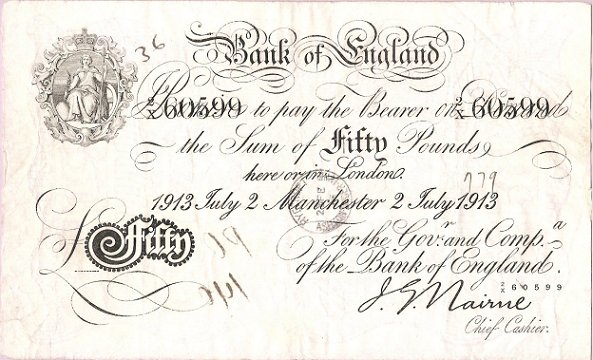 36
Bank of England
2/X 60599 2/X 60599
I Promise to pay the Bearer on Demand
the Sum of Fifty Pounds
here or in London.
779
1913 July 2 Manchester 2 July 1913
£ Fifty
For the Govr. and Compa.
of the Bank of England.
2/X 60599
J. G. Nairne
Chief Cashier.